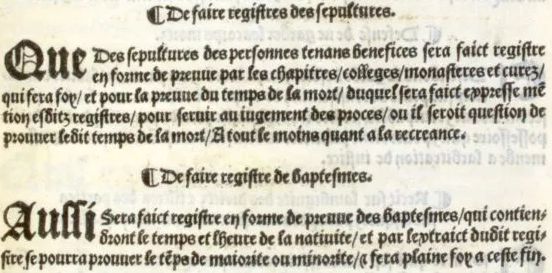 ¶ De faire registres des sepultures.
QUE Des sepultures des personnes tenans benefices sera faict registre
en forme de preuue par les chapitres/colleges/monasteres et curez/
qui fera foy/ et pour la preuue du temps de la mort/ duquel sera faict expresse mē
tion esditz registres/ pour seruir au iugement des proces/ ou il seroit question de
prouuer ledit temps de la mort/ A tout le moins quant a la recreance.
¶ De faire registre de baptesmes.
Aussi Sera faict registre en forme de preuue des baptesmes/qui contien-
dront le temps et lheure de la natiuite/ et par lextraict dudit regi-
stre se pourra prouuer le tēps de maiorite ou minorite/ ⁊ fera plaine foy a ceste fin.